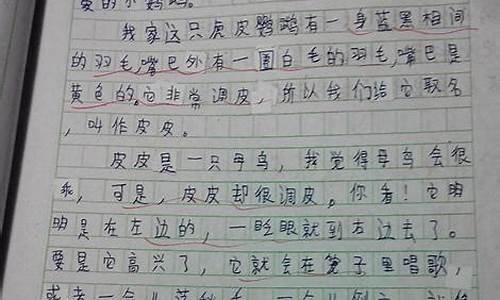 爱的小鹦鹉。
我家这只虎皮鹦鹉有一身蓝黑相间
的羽毛,嘴巴外有一圈白毛的羽毛,嘴巴是
黄色的。它非常调皮，所以我们给它取名
，叫作皮皮。
皮皮是一只母鸟，我觉得母鸟会很
乖，可是，皮皮却很调皮。你看！它明
明是在左边的，一眨眼就到右边去了。
要是它高兴了，它就会在笼子里唱歌，
或者一会儿荡秋千，一会儿